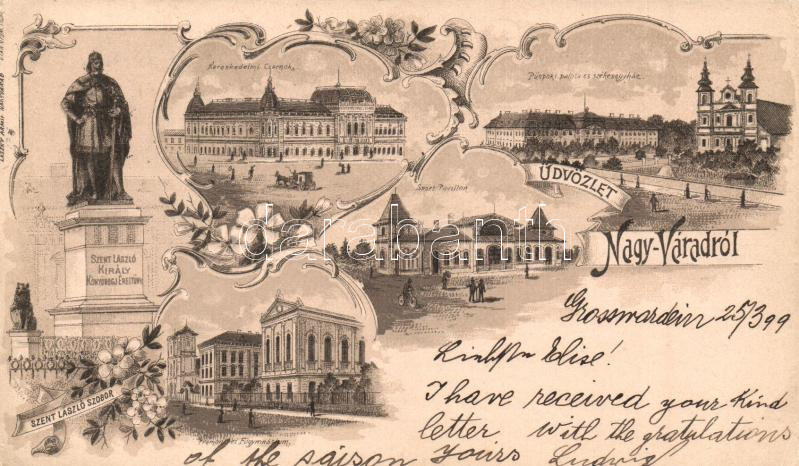 Kereskedelmi Csarnok.
Püspöki palota és székesegyház.
Sport-Pavillon
ÜDVÖZLET
Nagy-Váradról
SZENT LÁSZLÓ
KIRÁLY
KÖNYÖRÖGJ ÉRETTÜNK
SZENT LÁSZLÓ SZOBOR
Főgymnasium.
darabanth.com
Grosswardein 25/3 99
Liebste Elise!
I have received your Kind
letter with the gratulations
of the saison Yours Ludwig